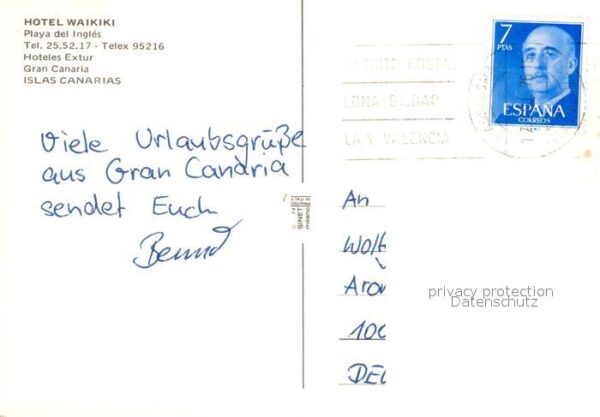 HOTEL WAIKIKI
Playa del Inglés
Tel. 25.52.17 - Telex 95216
Hoteles Extur
Gran Canaria
ISLAS CANARIAS
Viele Urlaubsgrüße
aus Gran Canaria
sendet Euch
Bernd
7
PTAS
ESPAÑA
CORREOS
POSTAL
LONA-BILBAO
LA Y VALENCIA
SINET
milano
An
Wolf
Aron
100
DE
privacy protection
Datenschutz